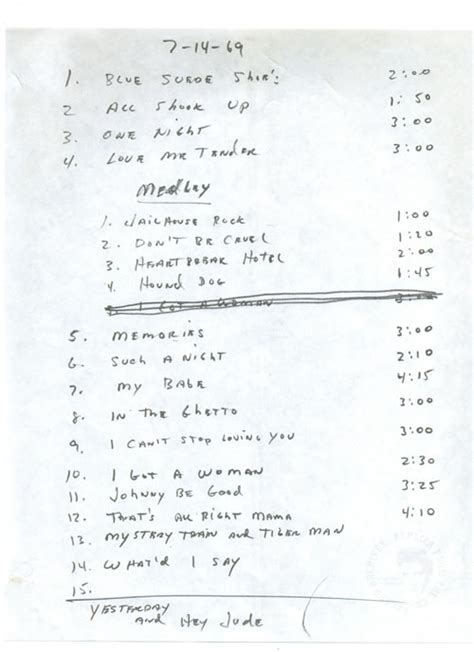 7-14-69
1. BLUE SUEDE SHOE'S 2:00
2 ALL SHOOK UP 1:50
3. ONE NIGHT 3:00
4. LOVE ME TENDER 3:00
MEDLEY
1. JAILHOUSE ROCK 1:00
2. DON'T BE CRUEL 1:20
3. HEARTBREAK HOTEL 2:00
4. HOUND DOG 1:45
I GOT A WOMAN 3:00
5. MEMORIES 3:00
6. SUCH A NIGHT 2:10
7. MY BABE 4:15
8. IN THE GHETTO 3:00
9. I CAN'T STOP LOVING YOU 3:00
10. I GOT A WOMAN 2:30
11. JOHNNY BE GOOD 3:25
12. THAT'S ALL RIGHT MAMA 4:10
13. MYSTERY TRAIN AND TIGER MAN
14. WHAT'D I SAY
15.
YESTERDAY
AND HEY JUDE